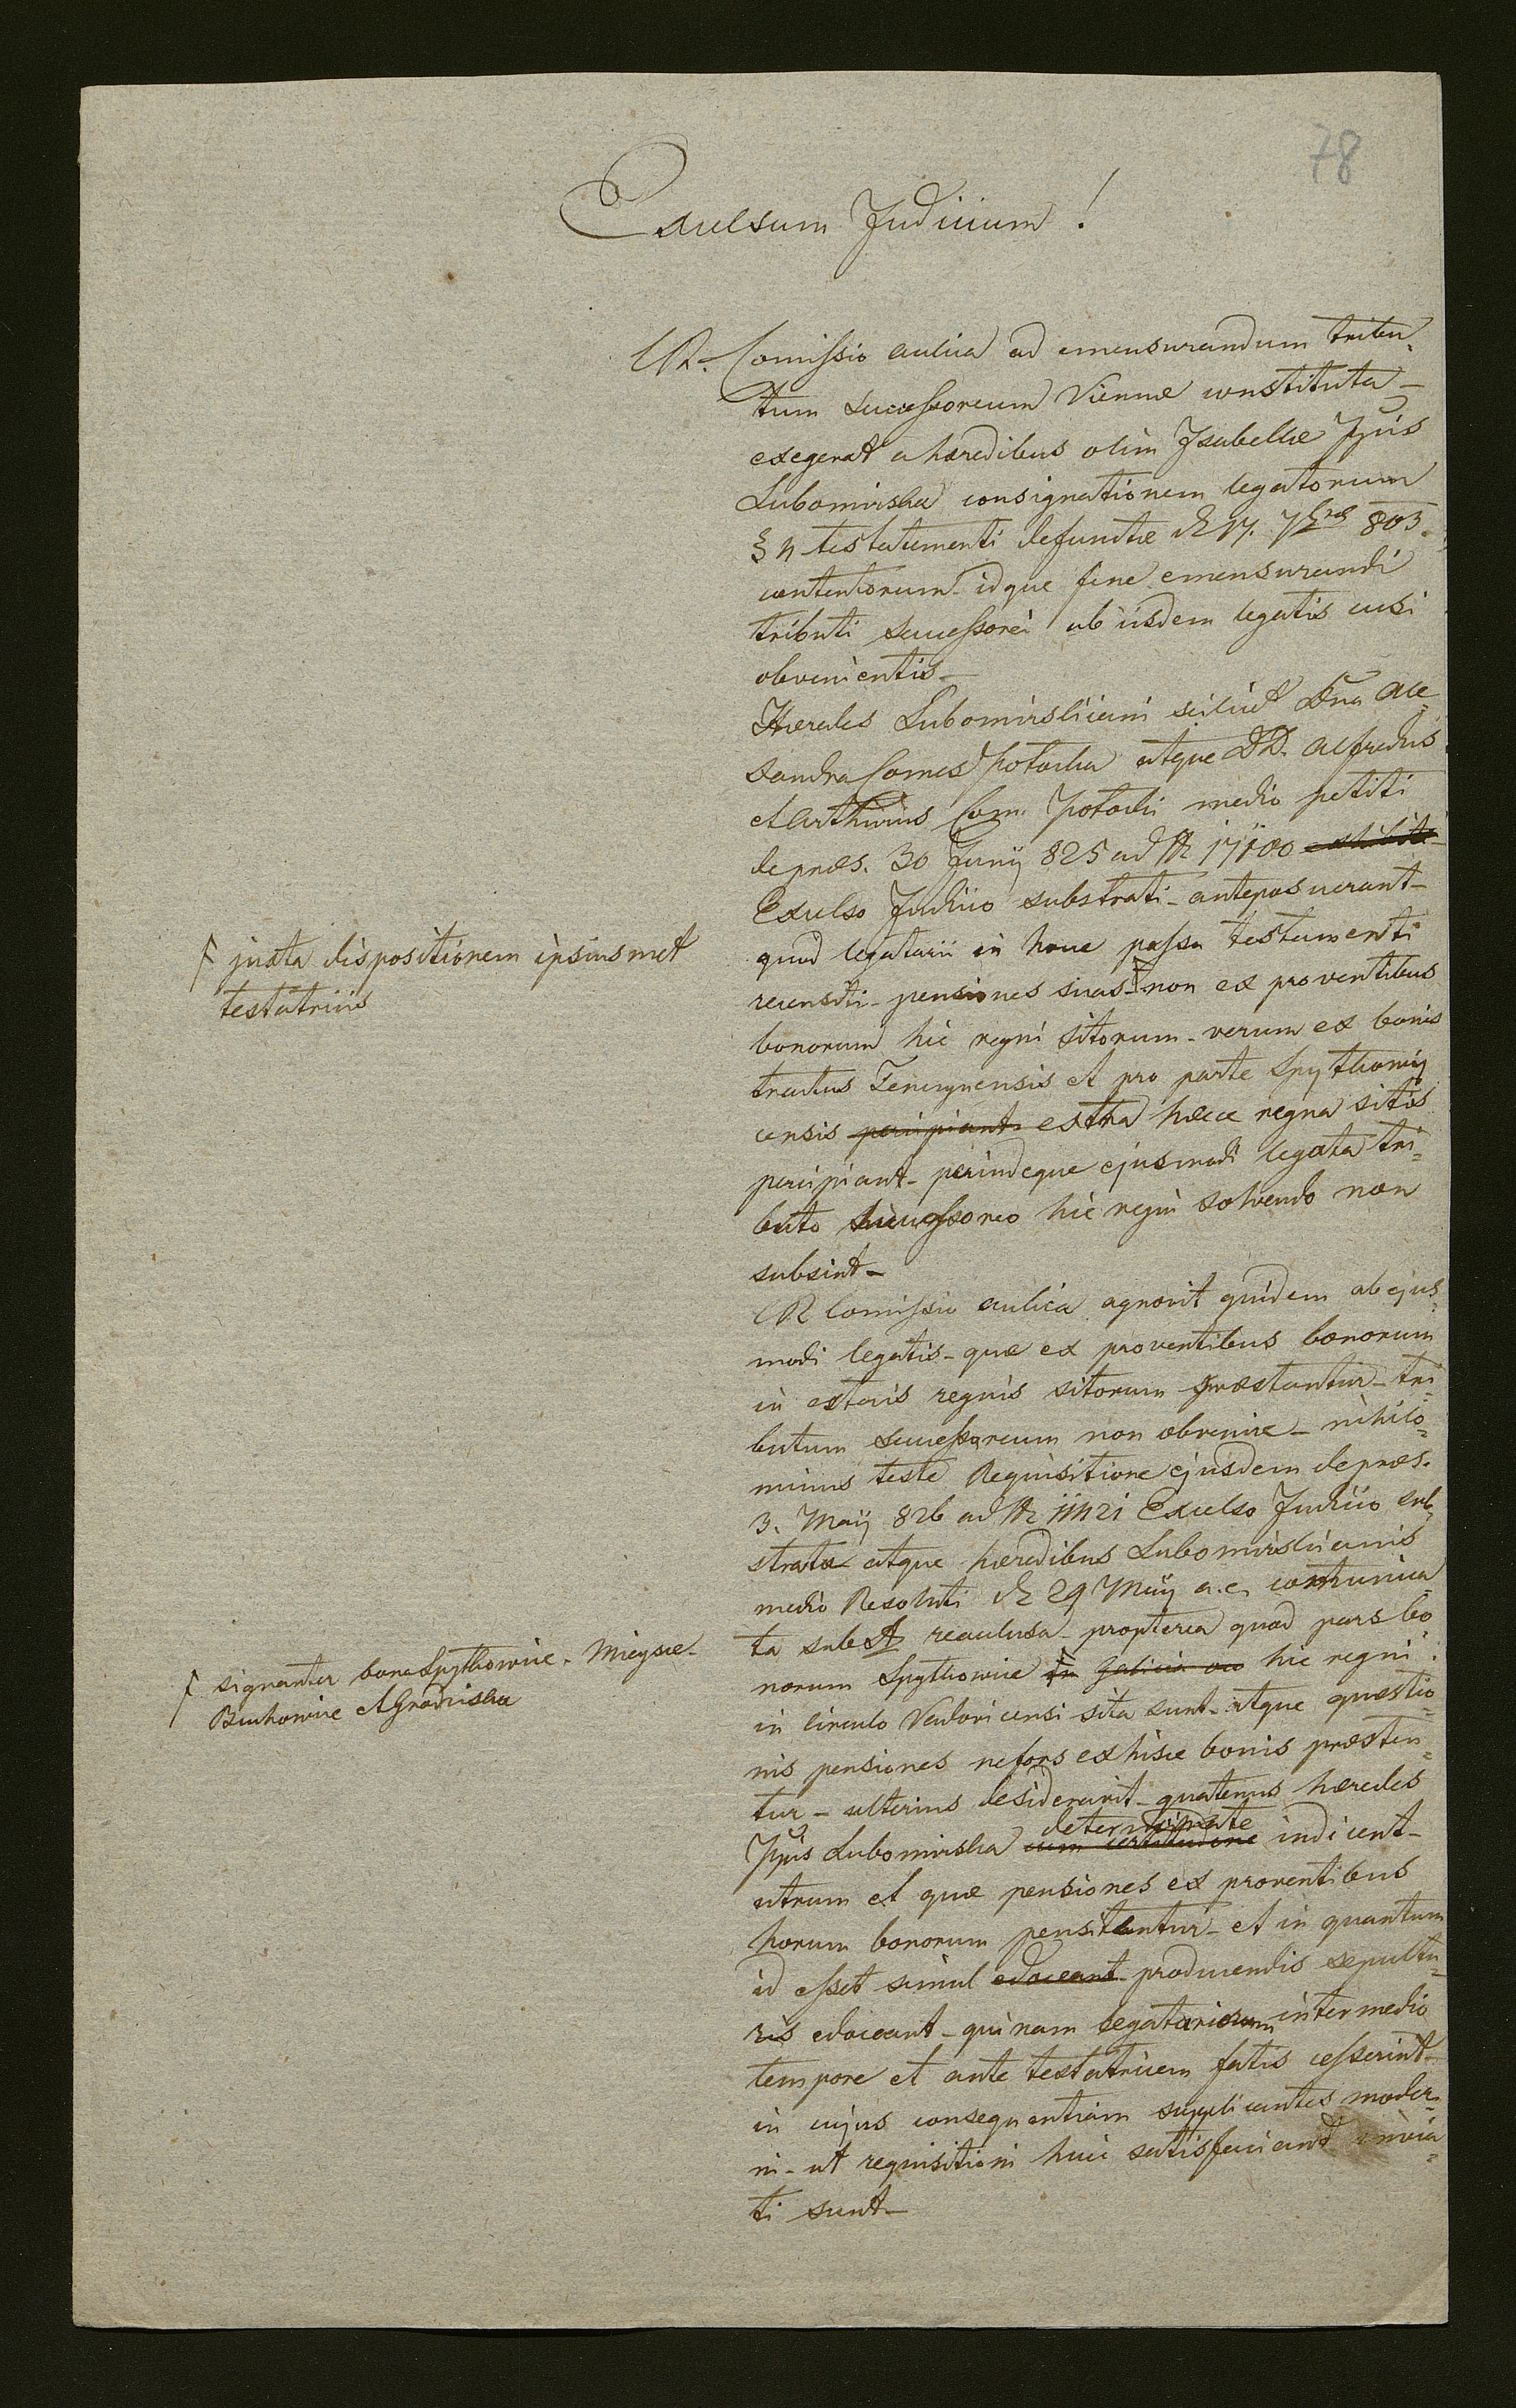 78
Excelsum Judicium!
CR. Comissio aulica ad emensurandum tribu¬
tum successoreum Viennæ constituta –
exegerat a hæredibus olim Isabellæ Ppis
Lubomirska consignationem legatorum
§ 4 testamenti defunctæ dt 17. 7bris 803.
contentorum idque fine emensurandi
tributi successorei ab iisdem legatis cusi
obvenientis –
Hæredes Lubomirsciani scilicet Dna Ale¬
xandra Comes Potocka atque DD. Alfredus
et Arthurus Com. Potocki medio petiti
de præs. 30 Junij 825 ad N 17100 exhibiti
Excelso Judicio substrati – anteposuerunt –
quod legatarii in hoce passu testamenti
recensiti – pensiones suas – Ƒ non ex proventibus
Ƒ juxta dispositionem ipsiusmet
testatricis
bonorum hic regni sitorum – verum ex bonis
tractus Tencynensis et pro parte Spytkowi¬
censis percipiant extra hæce regna sitis
percipiant – perindeque ejusmodi legata tri¬
buto successoreo hic regni solvendo non
subsint –
CR Comissio aulica agnovit quidem ab ejus¬
modi legatis – quæ ex proventibus bonorum
in exteris regnis sitorum præstantur – tri¬
butum successoreum non obvenire – nihilo¬
minus teste Requisitione ejusdem de præs.
3. Maij 826 ad N 11421 Excelso Judicio sub¬
stratæ atque hæredibus Lubomirscianis
medio Resoluti dt 29 Maij a.c. communica¬
ta sub A reaclusa – propterea quod pars bo¬
norum Spytkowice in Galicia hic regni
Ƒ signanter bona Spytkowice – Miejsce –
Bachowice et Grodzisko
in circulo Vadovicensi sita sunt – atque quæstio¬
nis pensiones nefors ex hisce bonis præsten¬
tur – ulterius desideravit – quatenus hæredes
determinate
Ppis Lubomirska cum certitudine indicent –
utrum et quæ pensiones ex proventibus
horum bonorum pensitantur – et in quantum
id esset simul edoceant producendis sepultu¬
ris edoceant – quinam legatariorum intermedio
tempore et ante testatricem fatis cesserint –
in cujus consequentiam supplicantes moder¬
ni – ut requisitioni huic satisfaciant invia¬
ti sunt –